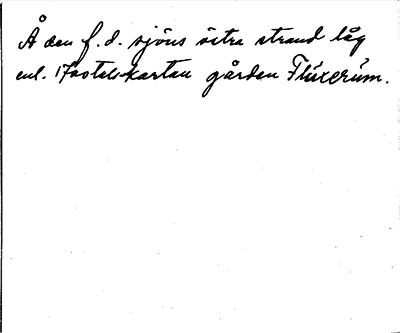 Å den f.d. sjöns östra strand låg
enl. 1700talskartan gården Flúxerúm.